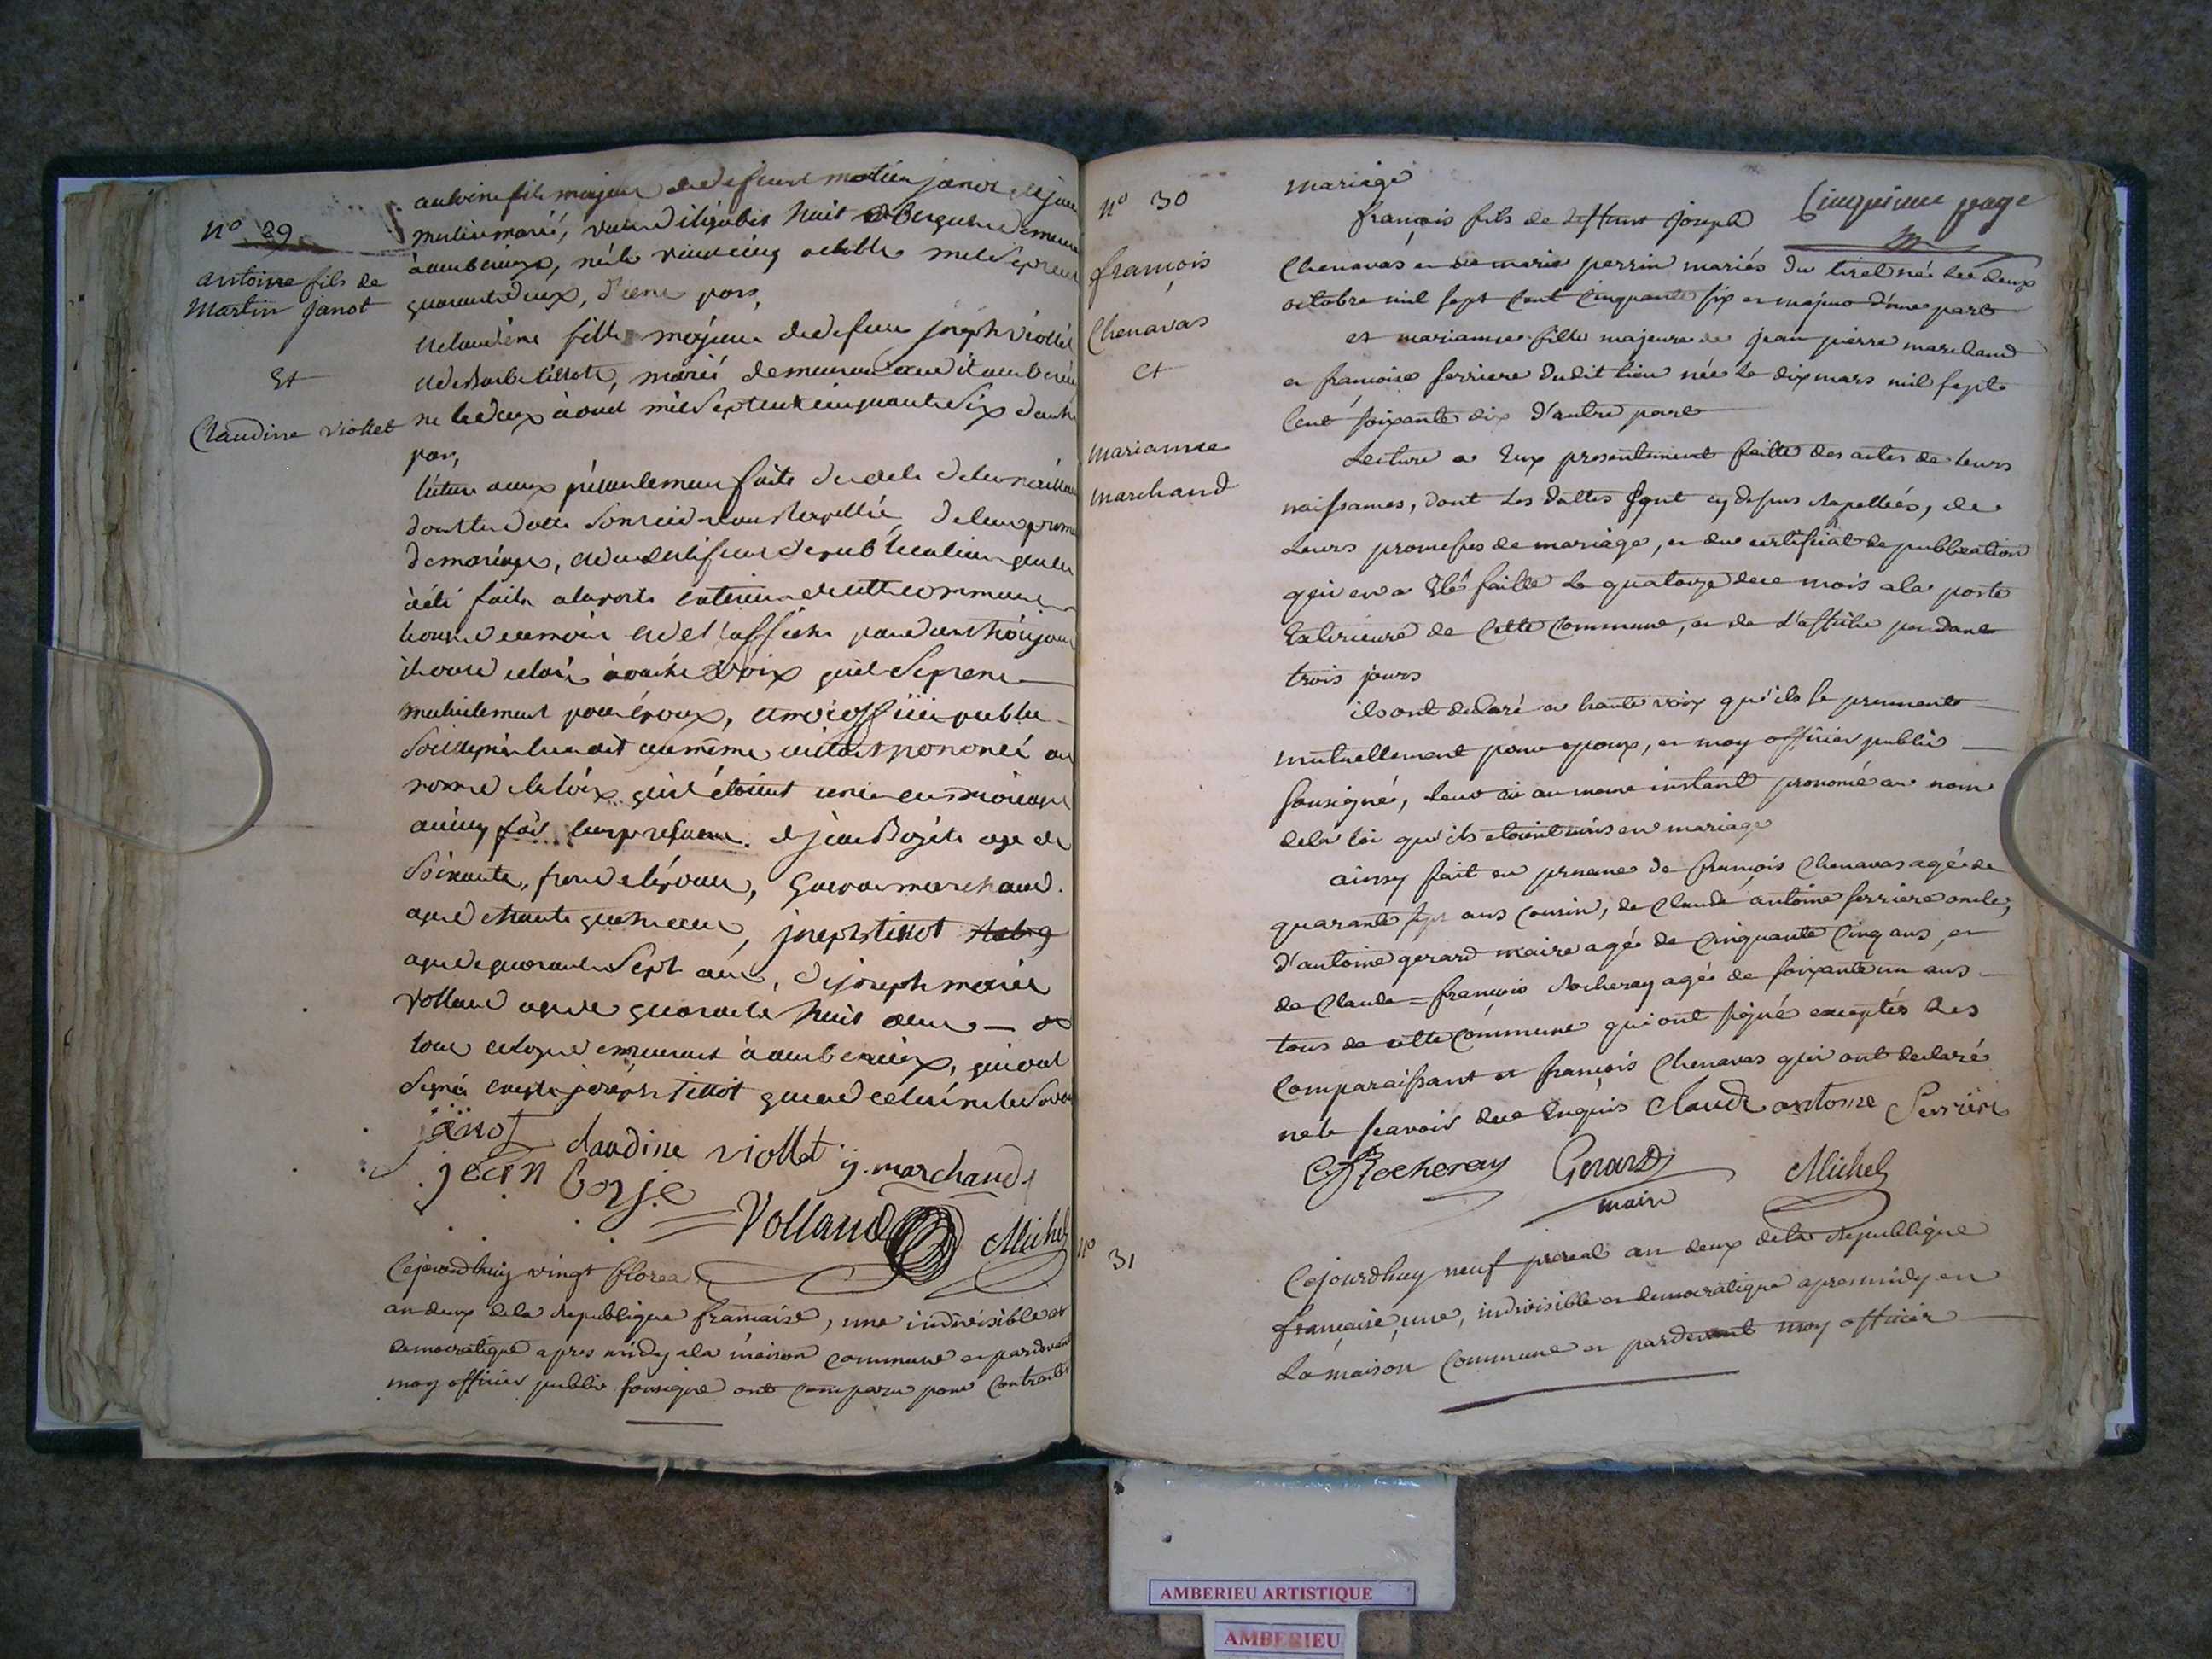 N° 29
antoine fils de
Martin Janot
Et
Claudine Viollet
antoine fils majeur de defunt martin janot
mariés,
à ambérieux, né le vingt cinq octobre mil sept cent
quarante deux, d'une part,
et claudine fille majeure de defunt joseph viollet
mariés demeurant
née le deux aout mil sept cent cinquante six d'autre
part,
lecture a eux présentement faite
de mariage, et du certificat de publication qui en
à été faite a la porte exterieure de cette commune
et de l'affiche pendant trois jours
ils ont declaré à haute voix qu'il se prene
mutuelement pour époux, et moi officier public
soussigné leur ait au même instant prononcé au
nom de la loix qu'il étoient unis en mariage
ainsy fait en presence de jean Bozje age de
soixante, marchand
age de trente quatre ans, joseph tissot
age de quarante sept ans, de joseph marie
volland age de quarante huit ans
tous demeurant à amberieux, qui ont
signé excepté joseph Tissot
janot claudine viollet g. marchand
jean bozje
Volland Michel
Cejourdhuy vingt floreal
an deux de la republique francaise, une indivisible et
democratique apres midy a la maison commune et pardevant
moy officier public sousigné ont comparu pour contracter
N° 30
françois
Chenavas
et
marianne
marchand
Cinquieme page
mariage
françois fils de deffunt joseph
Chenavas et de marie perrin mariés du tiret né le deux
octobre mil sept cent cinquante six et majeur d'une part
et marianne fille majeure de jean pierre marchand
et françoise ferriere dudit lieu née le dix mars mil sept
cent soixante dix d'autre part
Lecture a eux presentement faitte des actes de leurs
naissances, dont les dattes sont cy dessus rapellées, de
leurs promesses de mariage, et du certificat de publication
qui en a été faitte le quatorze de ce mois a la porte
exterieure de cette commune, et de l'affiche pendant
trois jours
ils ont declaré a haute voix qu'ils se prennent
mutuellement pour epoux, et moy officier public
sousigné, leur ai au meme instant prononcé au nom
de la loi qu'ils etoient unis en mariage
ainsy fait en presence de françois Chenavas agé de
quarante sept ans cousin, de claude antoine ferriere oncle,
d'antoine gerard maire agé de cinquante cinq ans, et
de Claude=françois Rocheray agé de soixante un ans
tous de cette commune qui ont signé exceptés les
comparaissant et françois Chenavas qui ont declaré
ne le scavoir de ce enquis claude antoine Ferriere
CfRocheray Gerard Michel
maire
N° 31
Cejourdhuy neuf prereal an deux de la republique
française, une, indivisible et democratique apres midy en
la maison commune et pardevant moy officier
AMBERIEU ARTISTIQUE
AMBERIEU